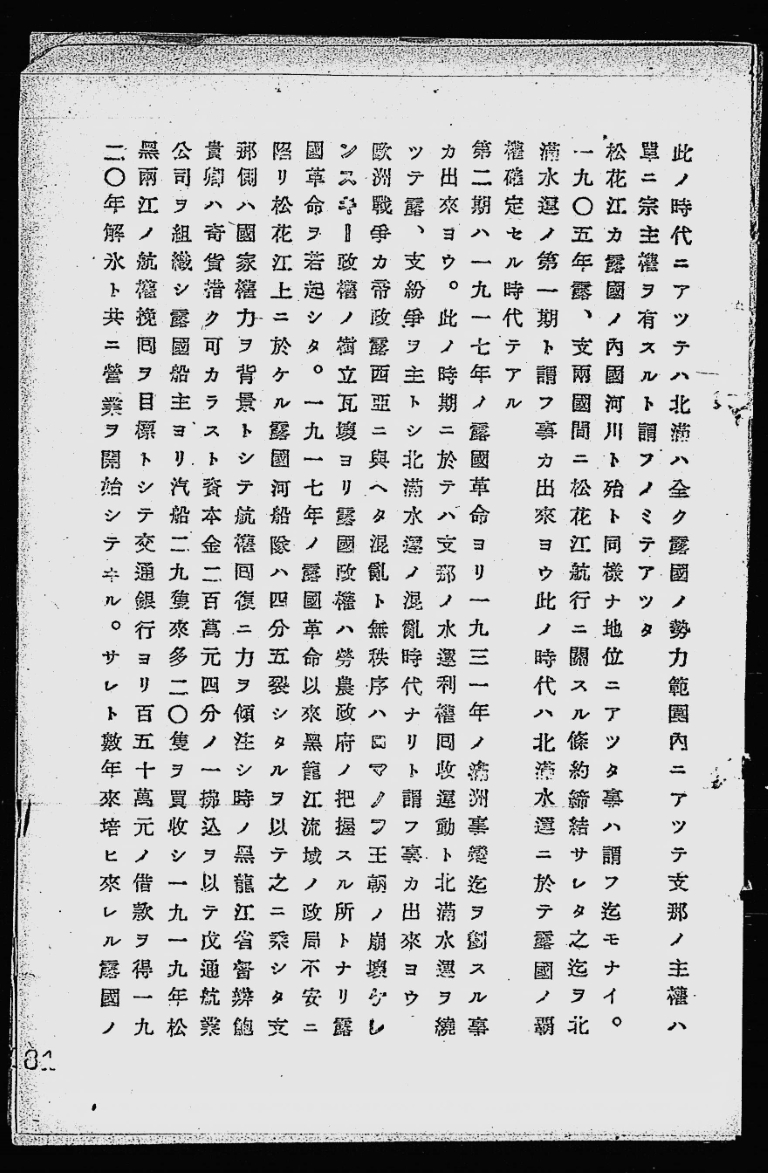 此ノ時代ニアツテハ北滿ハ全ク露國ノ勢力範圍內ニアツテ支那ノ主權ハ
單ニ宗主權ヲ有スルト謂フノミテアツタ
松花江カ露國ノ內國河川ト殆ト同樣ナ地位ニアツタ事ハ謂フ迄モナイ。
一九〇五年露、支兩國間ニ松花江航行ニ關スル條約締結サレタ之迄ヲ北
滿水運ノ第一期ト謂フ事カ出來ヨウ此ノ時代ハ北滿水運ニ於テ露國ノ覇
權確定セル時代テアル
第二期ハ一九一七年ノ露國革命ヨリ一九三一年ノ滿洲事變迄ヲ劃スル事
カ出來ヨウ。此ノ時期ニ於テハ支那ノ水運利權回收運動ト北滿水運ヲ繞
ツテ露、支紛爭ヲ主トシ北滿水運ノ混亂時代ナリト謂フ事カ出來ヨウ
歐洲戰爭カ帝政露西亞ニ與ヘタ混亂ト無秩序ハロマノフ王朝ノ崩壞ケレ
ンスキー政權ノ樹立瓦壞ヨリ露國政權ハ勞農政府ノ把握スル所トナリ露
國革命ヲ若起シタ。一九一七年ノ露國革命以來黑龍江流域ノ政局不安ニ
陷リ松花江上ニ於ケル露國河船隊ハ四分五裂シタルヲ以テ之ニ乘シタ支
那側ハ國家權力ヲ背景トシテ航權回復ニ力ヲ傾注シ時ノ黑龍江省督辨鮑
貴卿ハ奇貨措ク可カラスト資本金二百萬元四分ノ一拂込ヲ以テ戊通航業
公司ヲ組織シ露國船主ヨリ汽船二九隻來多二〇隻ヲ買收シ一九一九年松
黑兩江ノ航權挽回ヲ目標トシテ交通銀行ヨリ百五十萬元ノ借款ヲ得一九
二〇年解氷ト共ニ營業ヲ開始シテヰル。サレト數年來培ヒ來レル露國ノ